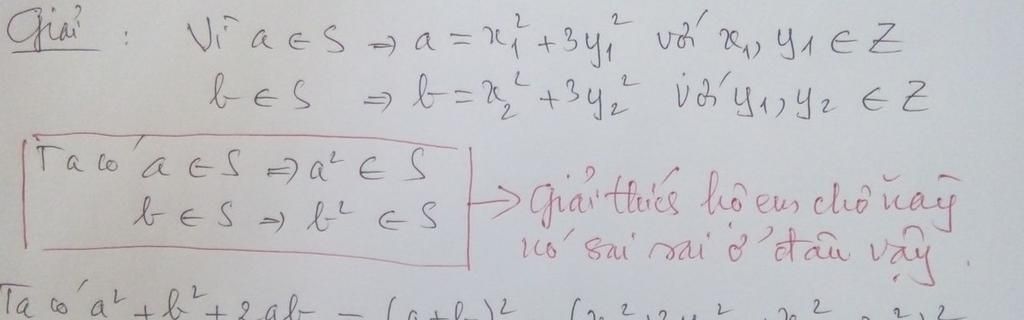 Giải : Vì a ∈ S ⇒ a = x₁² + 3y₁² với x₁, y₁ ∈ Z
b ∈ S ⇒ b = x₂² + 3y₂² với y₁, y₂ ∈ Z
Ta có a ∈ S ⇒ a² ∈ S
b ∈ S ⇒ b² ∈ S
→ Giải thích hộ em chỗ này
nó sai sai ở đâu vậy.
Ta có a² + b² + 2ab = (a+b)²